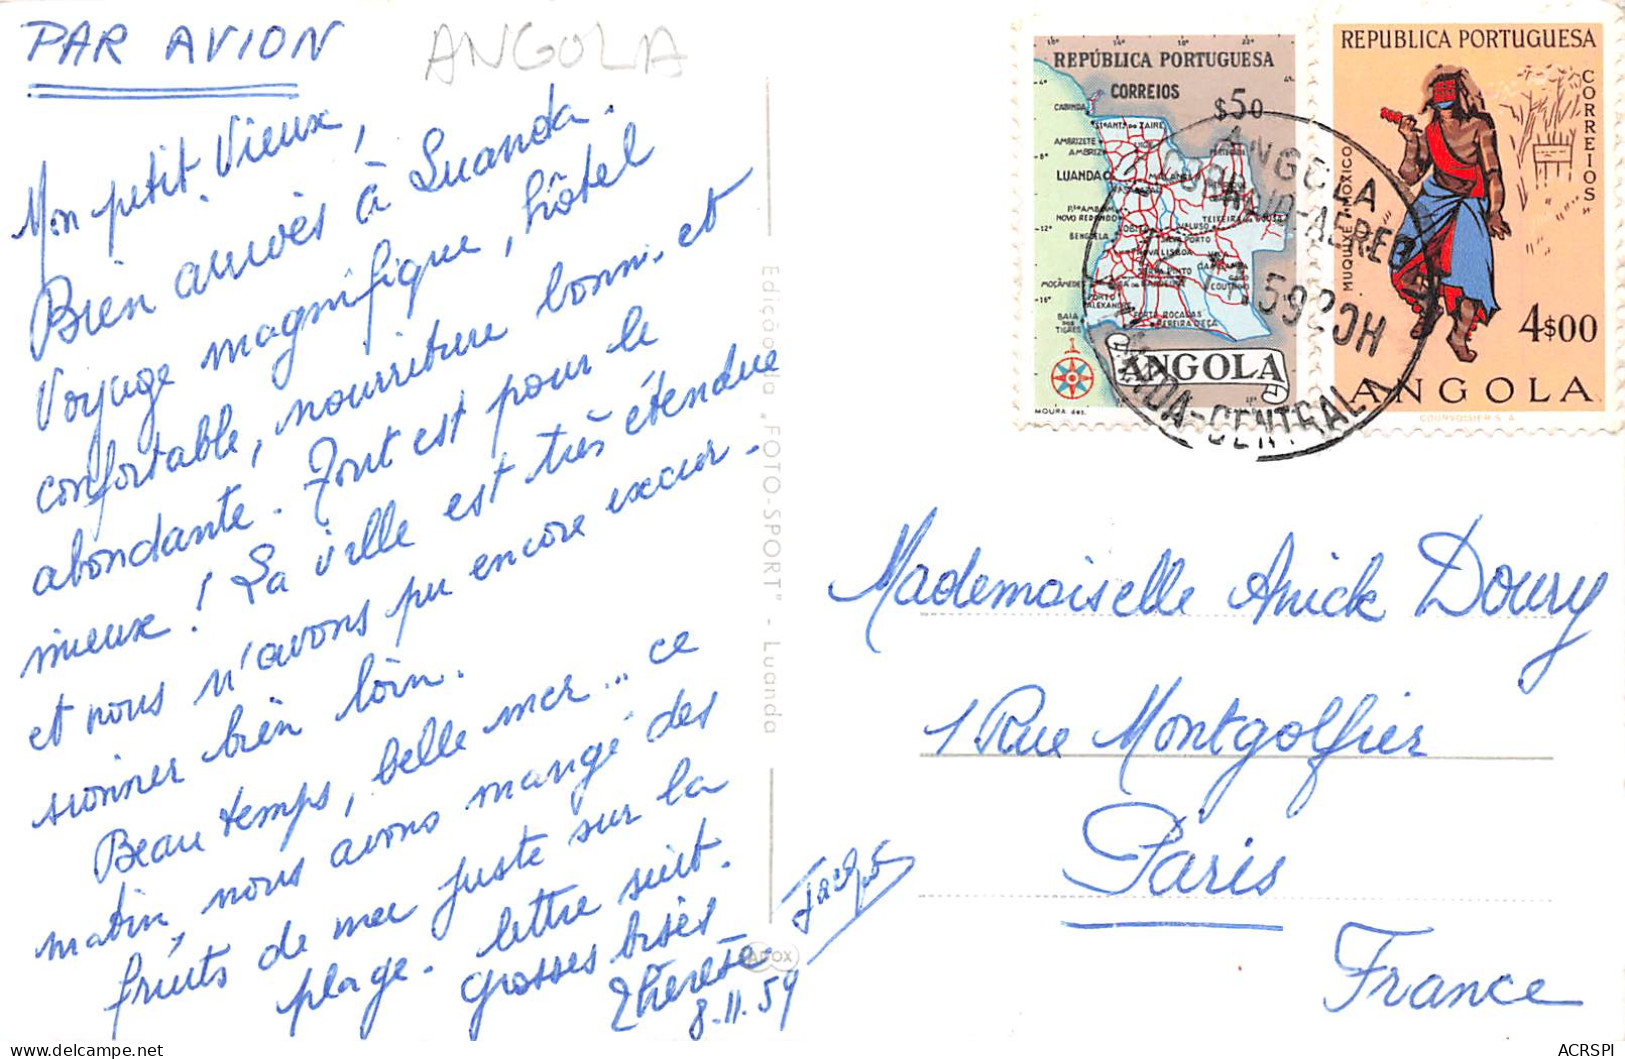 PAR AVION
ANGOLA
Mon petit Vieux,
Bien arrivés à Luanda.
Voyage magnifique, hôtel
confortable, nourriture bonne et
abondante. Tout est pour le
mieux ! La ville est très étendue
et nous n'avons pu encore excur-
sionner bien loin.
Beau temps, belle mer... ce
matin, nous avons mangé des
fruits de mer juste sur la
plage. lettre suit.
grosses bises
Thérèse
8.11.59
Edição da "FOTO-SPORT" - Luanda
REPÚBLICA PORTUGUESA
CORREIOS
$50
CABINDA
STO ANTO DO ZAIRE
AMBRIZETE
AMBRIZ
LUANDA
NOVO REDONDO
BENGUELA
NOVA LISBOA
MOÇÂMEDES
PORTO ALEXANDRE
BAIA DOS TIGRES
ANGOLA
MOURA des.
REPUBLICA PORTUGUESA
CORREIOS
MUQUIXE - MOXICO
4$00
ANGOLA
COURVOISIER S.A.
ANGOLA
59 20H
LUANDA-CENTRAL
Mademoiselle Anick Doury
1 Rue Montgolfier
Paris
France
ACRSPI